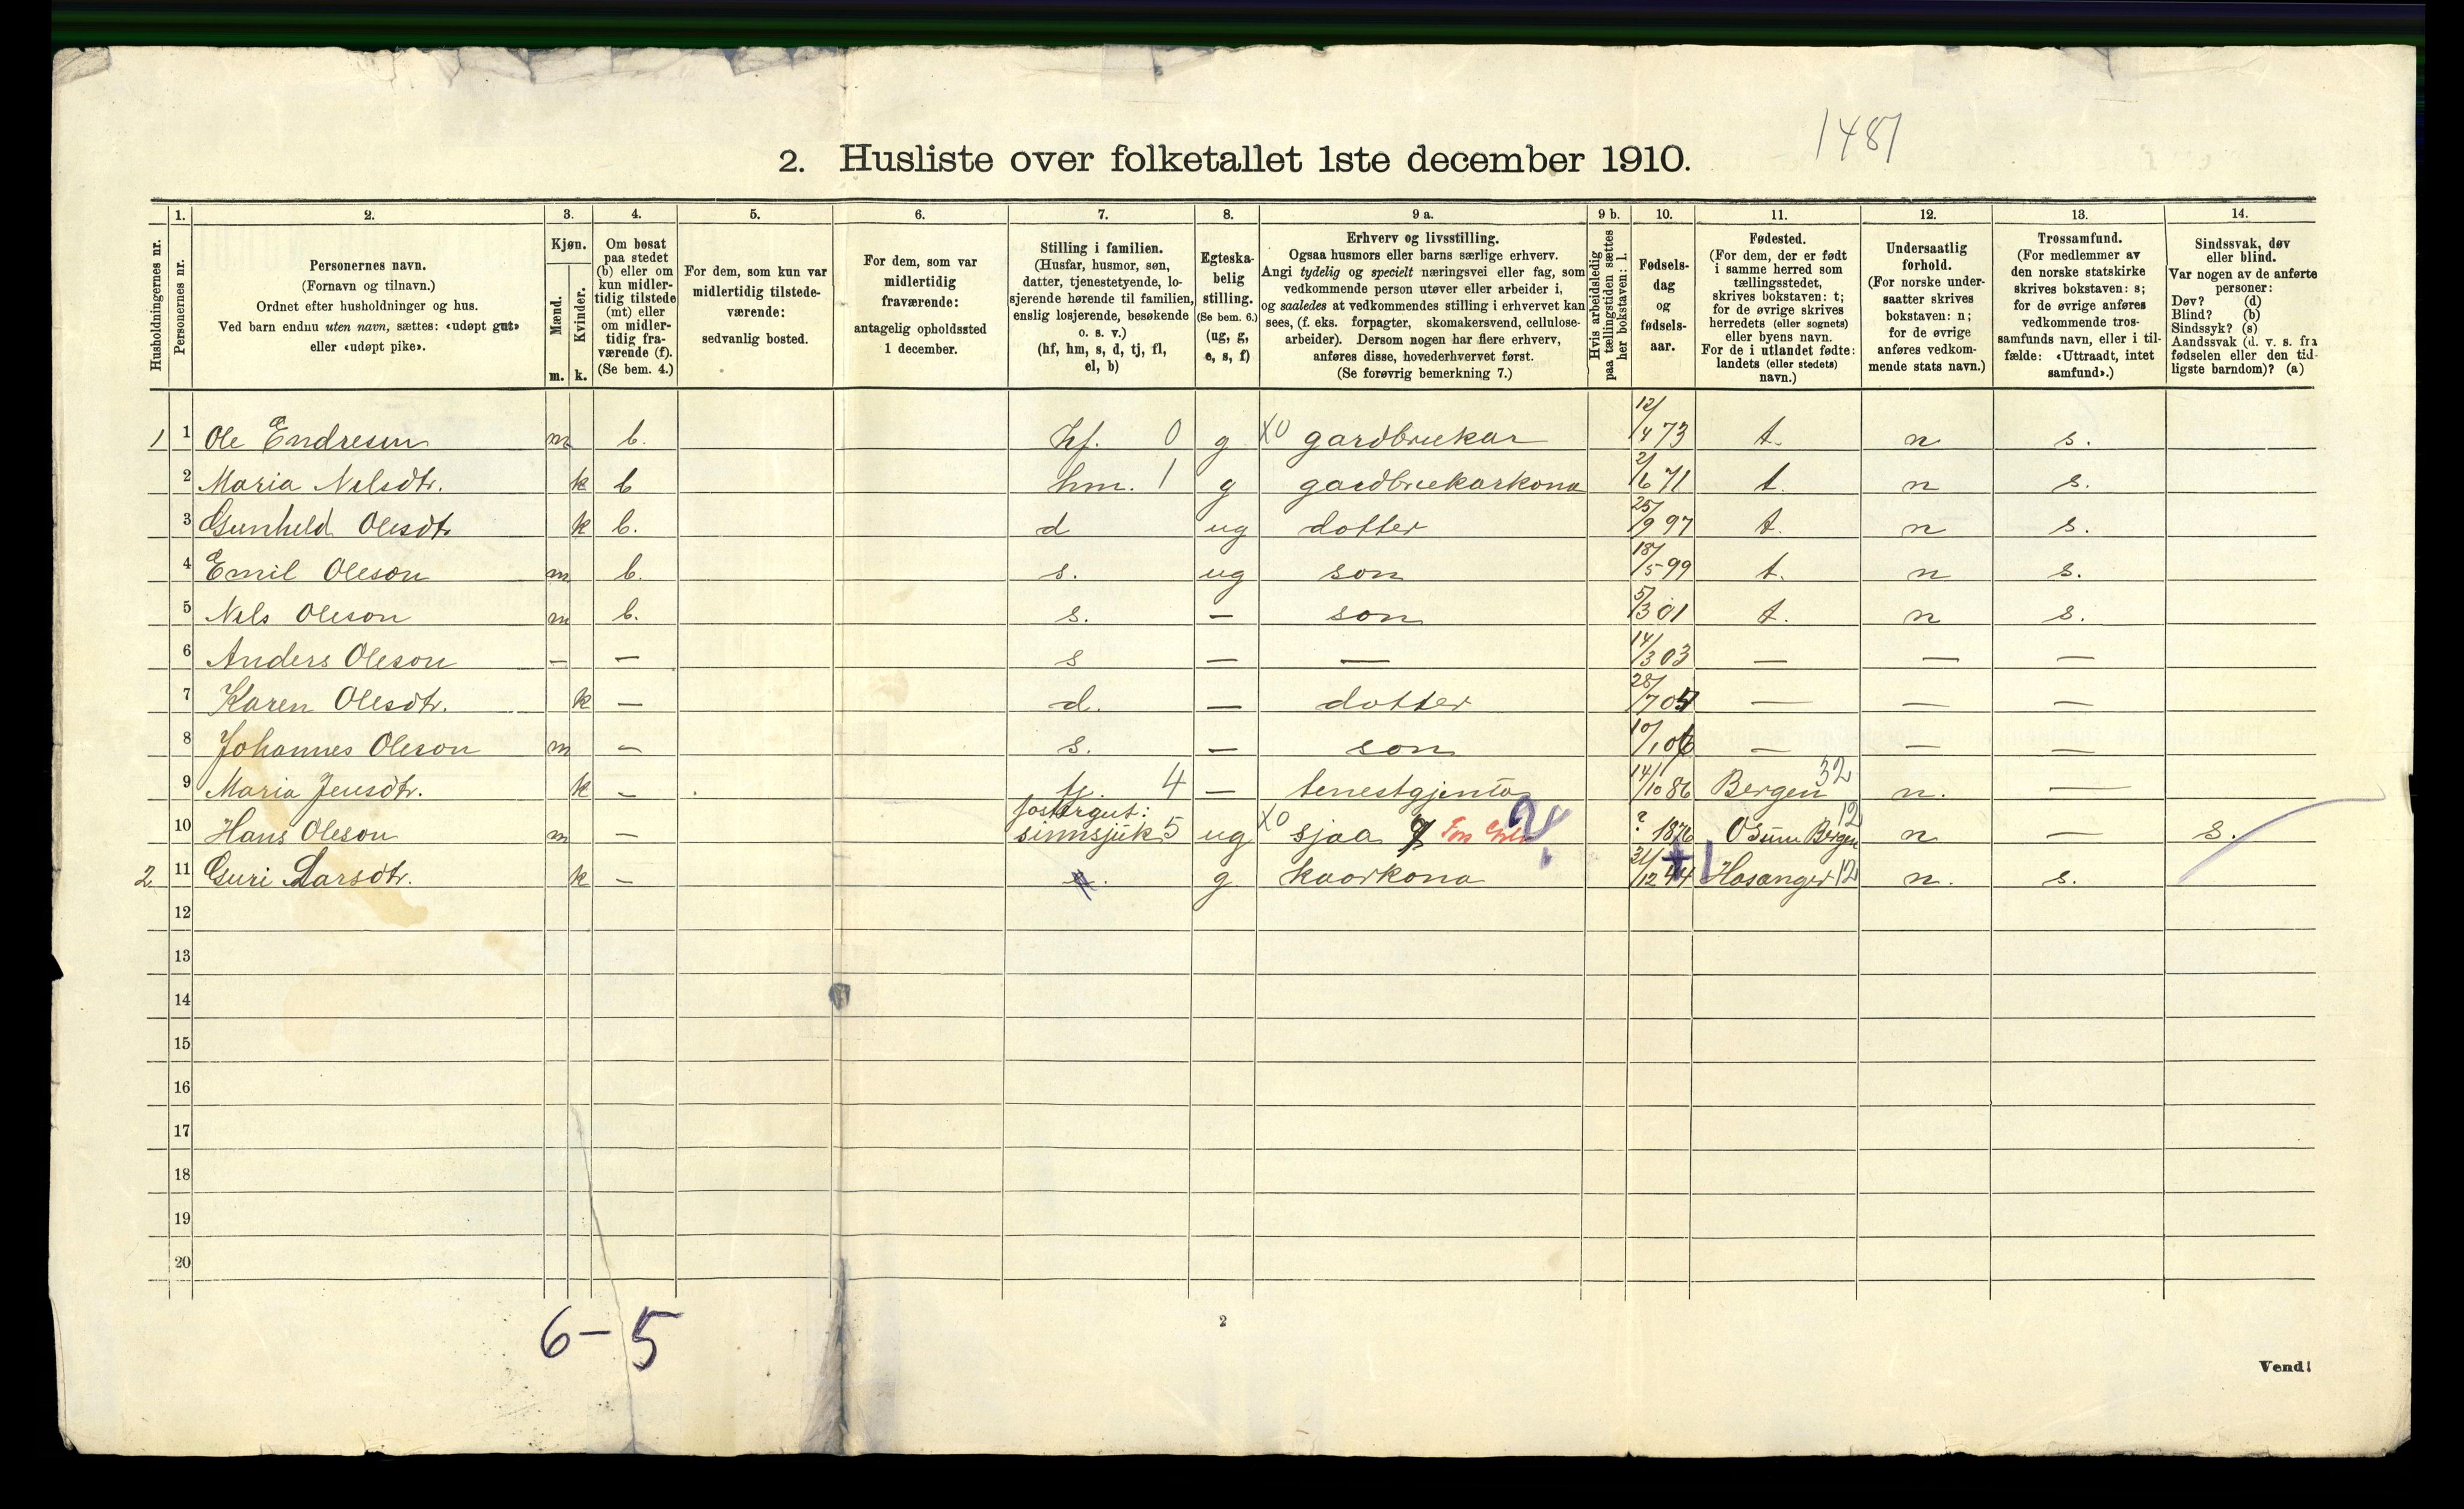 1481
2. Husliste over folketallet 1ste december 1910.
Husholdningernes nr.
1.
Personernes nr.
2.
Personernes navn.
(Fornavn og tilnavn.)
Ordnet efter husholdninger og hus.
Ved barn endnu uten navn, sættes: «udøpt gut»
eller «udøpt pike».
3.
Kjøn.
Mænd.
Kvinder.
m. k.
4.
Om bosat
paa stedet
(b) eller om
kun midler-
tidig tilstede
(mt) eller
om midler-
tidig fra-
værende (f).
(Se bem. 4.)
5.
For dem, som kun var
midlertidig tilstede-
værende:
sedvanlig bosted.
6.
For dem, som var
midlertidig
fraværende:
antagelig opholdssted
1 december.
7.
Stilling i familien.
(Husfar, husmor, søn,
datter, tjenestetyende, lo-
sjerende hørende til familien,
enslig losjerende, besøkende
o. s. v.)
(hf, hm, s, d, tj, fl,
el, b)
8.
Egteska-
belig
stilling.
(Se bem. 6.)
(ug, g,
e, s, f)
9 a.
Erhverv og livsstilling.
Ogsaa husmors eller barns særlige erhverv.
Angi tydelig og specielt næringsvei eller fag, som
vedkommende person utøver eller arbeider i,
og saaledes at vedkommendes stilling i erhvervet kan
sees, (f. eks. forpagter, skomakersvend, cellulose-
arbeider). Dersom nogen har flere erhverv,
anføres disse, hovederhvervet først.
(Se forøvrig bemerkning 7.)
9 b.
Hvis arbeidsledig
paa tællingstiden sættes
her bokstaven: l.
10.
Fødsels-
dag
og
fødsels-
aar.
11.
Fødested.
(For dem, der er født
i samme herred som
tællingsstedet,
skrives bokstaven: t;
for de øvrige skrives
herredets (eller sognets)
eller byens navn.
For de i utlandet fødte:
landets (eller stedets)
navn.)
12.
Undersaatlig
forhold.
(For norske under-
saatter skrives
bokstaven: n;
for de øvrige
anføres vedkom-
mende stats navn.)
13.
Trossamfund.
(For medlemmer av
den norske statskirke
skrives bokstaven: s;
for de øvrige anføres
vedkommende tros-
samfunds navn, eller i til-
fælde: «Uttraadt, intet
samfund».)
14.
Sindssvak, døv
eller blind.
Var nogen av de anførte
personer:
Døv? (d)
Blind? (b)
Sindssyk? (s)
Aandssvak (d. v. s. fra
fødselen eller den tid-
ligste barndom)? (a)
1 1 Ole Endresen m b. hf. 0 g X0 gardbrukar 12/4 73 t. n s.
2 Maria Nilsdtr. k b hm. 1 g gardbrukarkona 2/6 71 t. n s.
3 Gunhild Olesdtr k b. d ug dotter 25/9 97 t. n s.
4 Emil Oleson m b. s. ug son 18/5 99 t. n s.
5 Nils Oleson m b. s. — son 5/3 01 t. n s.
6 Anders Oleson — — s — — 14/3 03 — — —
7 Karen Olesdtr. k — d. — dotter 28/7 04 — — —
8 Johannes Oleson m — s. — son 10/1 06 — — —
9 Maria Jensdtr. k — tj. 4 — tenestgjenta 14/10 86 Bergen 32 n. —
10 Hans Oleson m — fostergut:
sinnsjuk 5 ug X0 sjaa ? 1876 Bergen 12 n — s.
2 11 Guri Larsdtr. k — g kaarkona 31/12 44 Hosanger 12 n. s.
12
13
14
15
16
17
18
19
20
6–5
2
Vend!